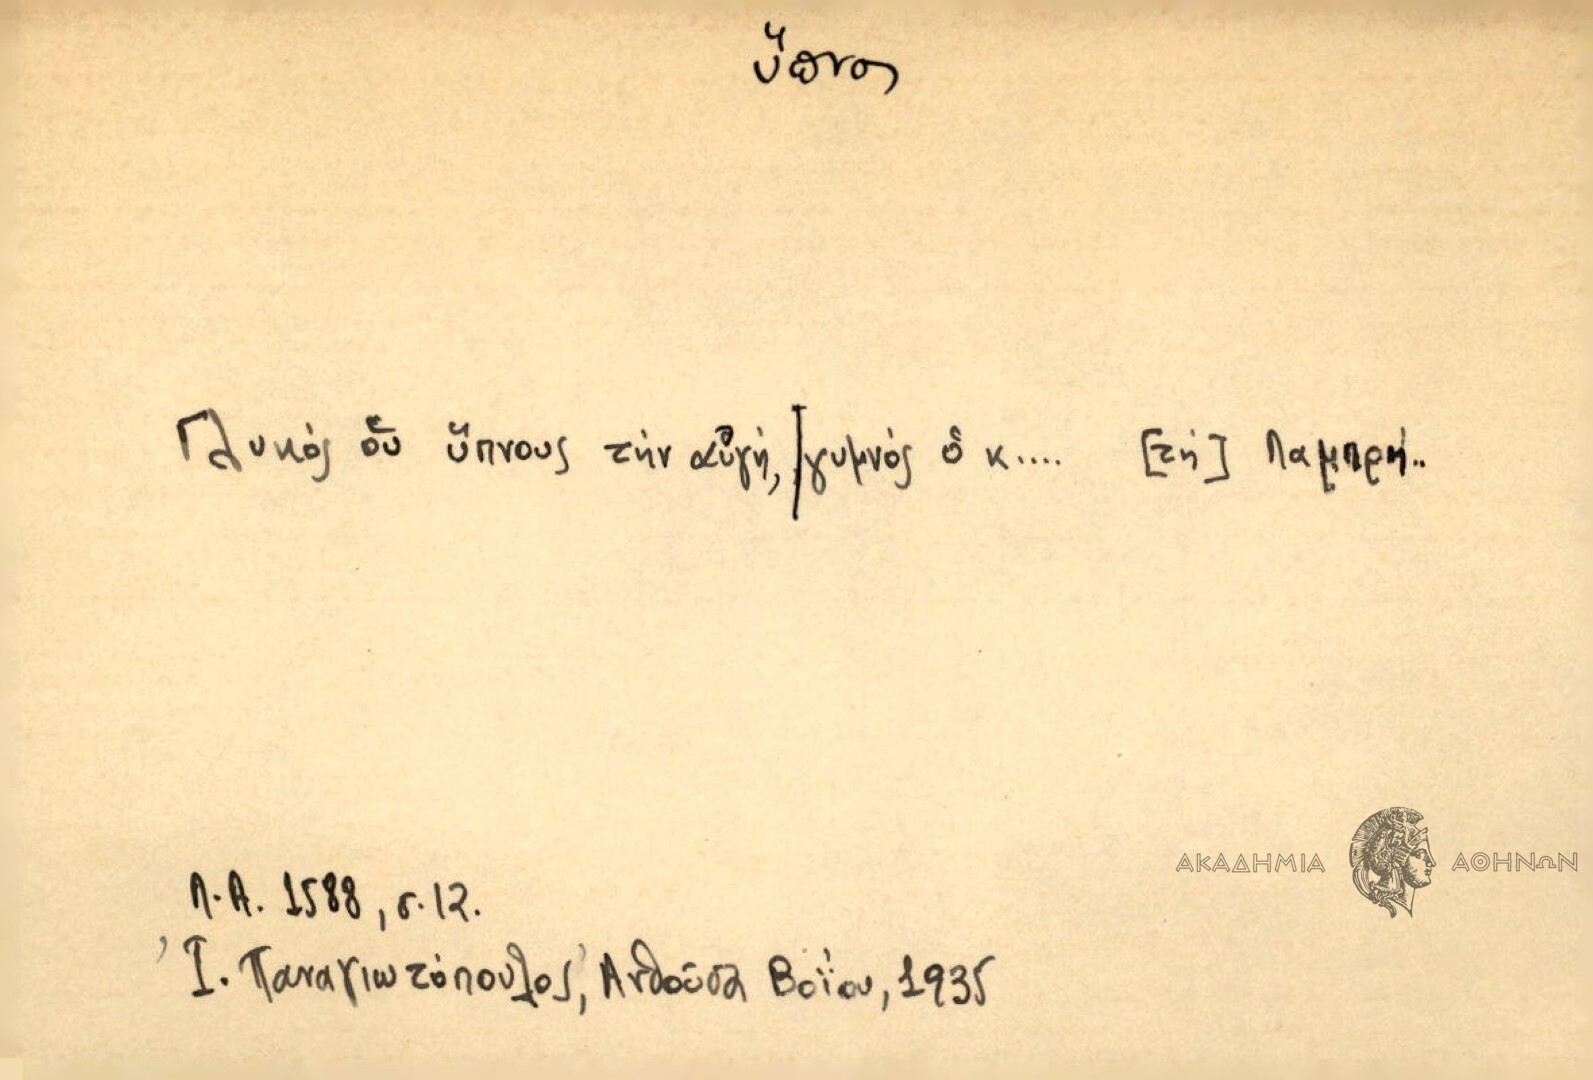 ὕπνος
Γλυκός οὕ ὕπνους τήν αὐγή, | γυμνός ὁ κ.... [τή] Λαμπρή..
ΑΚΑΔΗΜΙΑ ΑΘΗΝΩΝ
Λ.Α. 1588, σ. 12.
Ἰ. Παναγιωτόπουλος, Ἀνθοῦσα Βοΐου, 1935